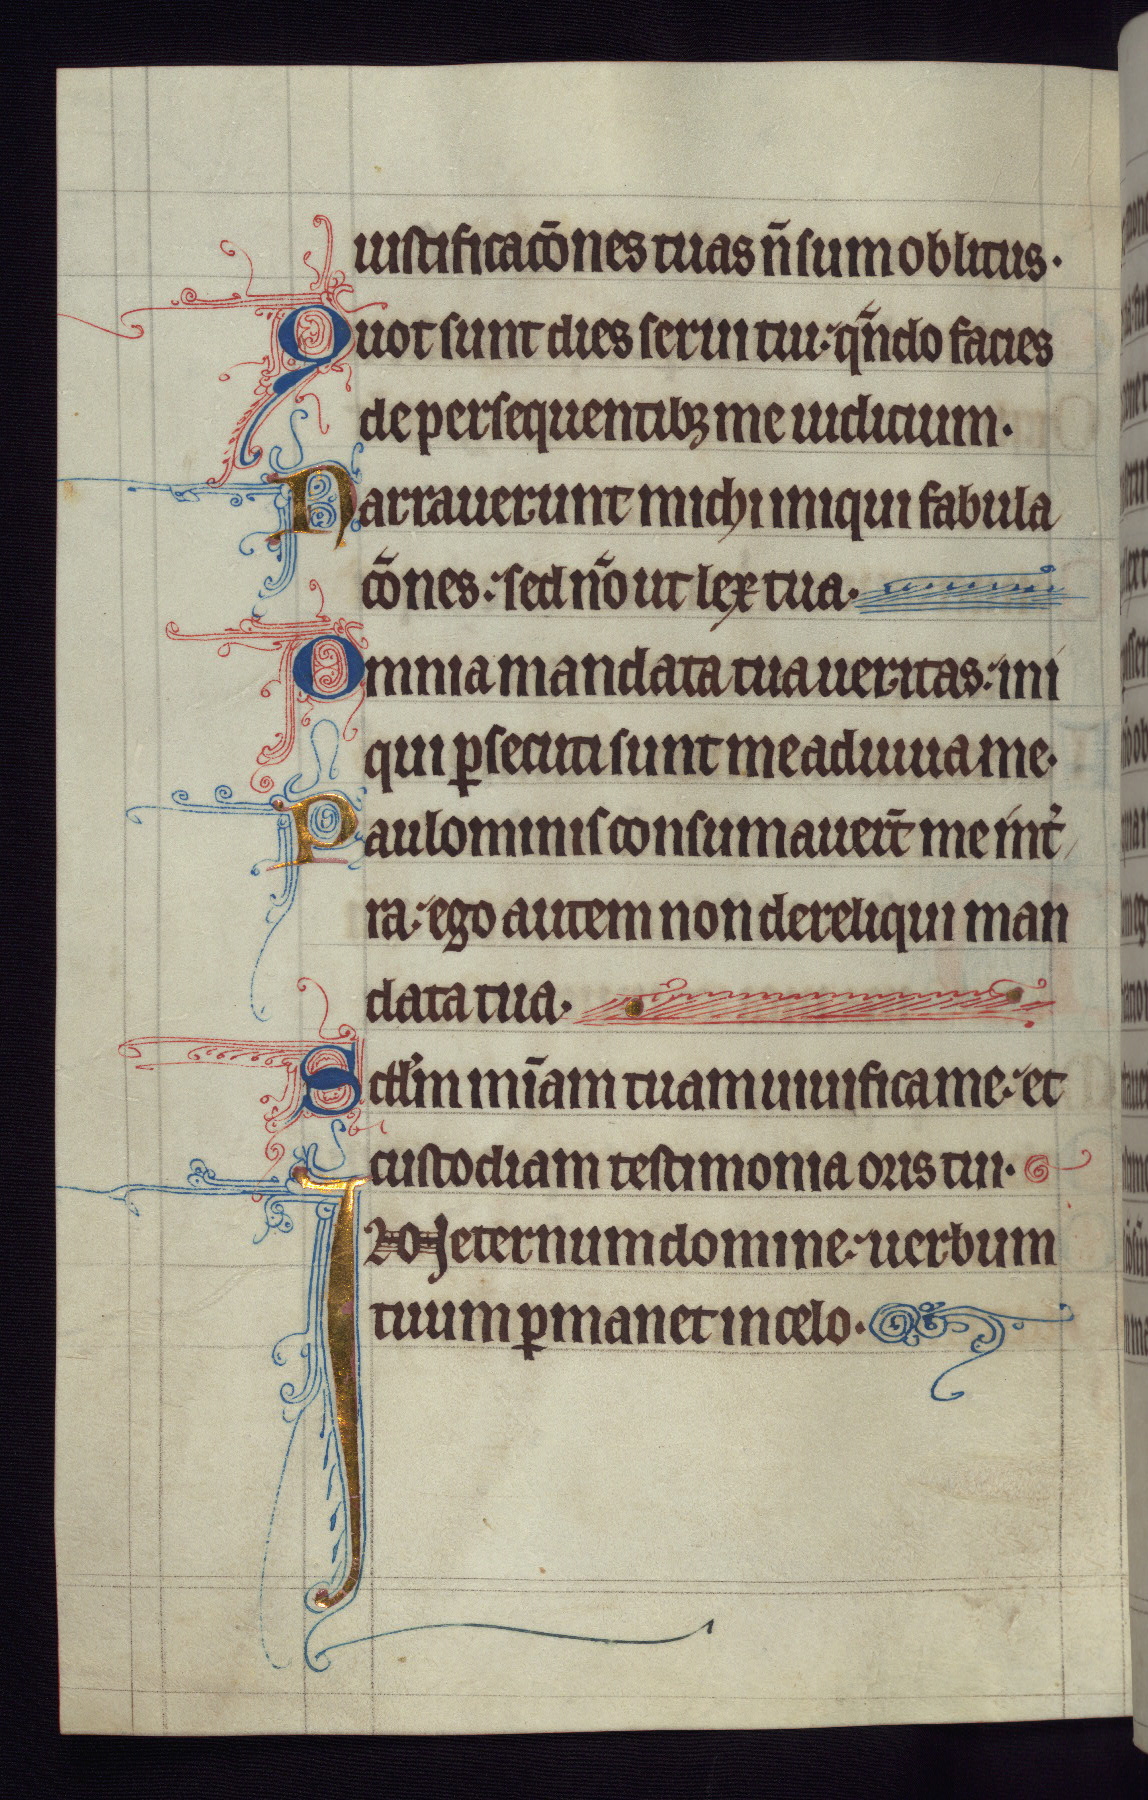 iustificacōnes tuas n̄ sum oblitus·
Quot sunt dies serui tui: qn̄do facies
de persequentibꝫ me iudicium·
Narrauerunt michi iniqui fabula
cōnes: sed nō ut lex tua·
Omnia mandata tua ueritas: ini
qui ꝑsecuti sunt me adiuua me·
Paulominus consumauerūt me in t̄
ra: ego autem non dereliqui man
data tua·
Scd̄m mīam tuam uiuifica me: et
custodiam testimonia oris tui·
In eternum domine: uerbum
tuum ꝑmanet in celo·